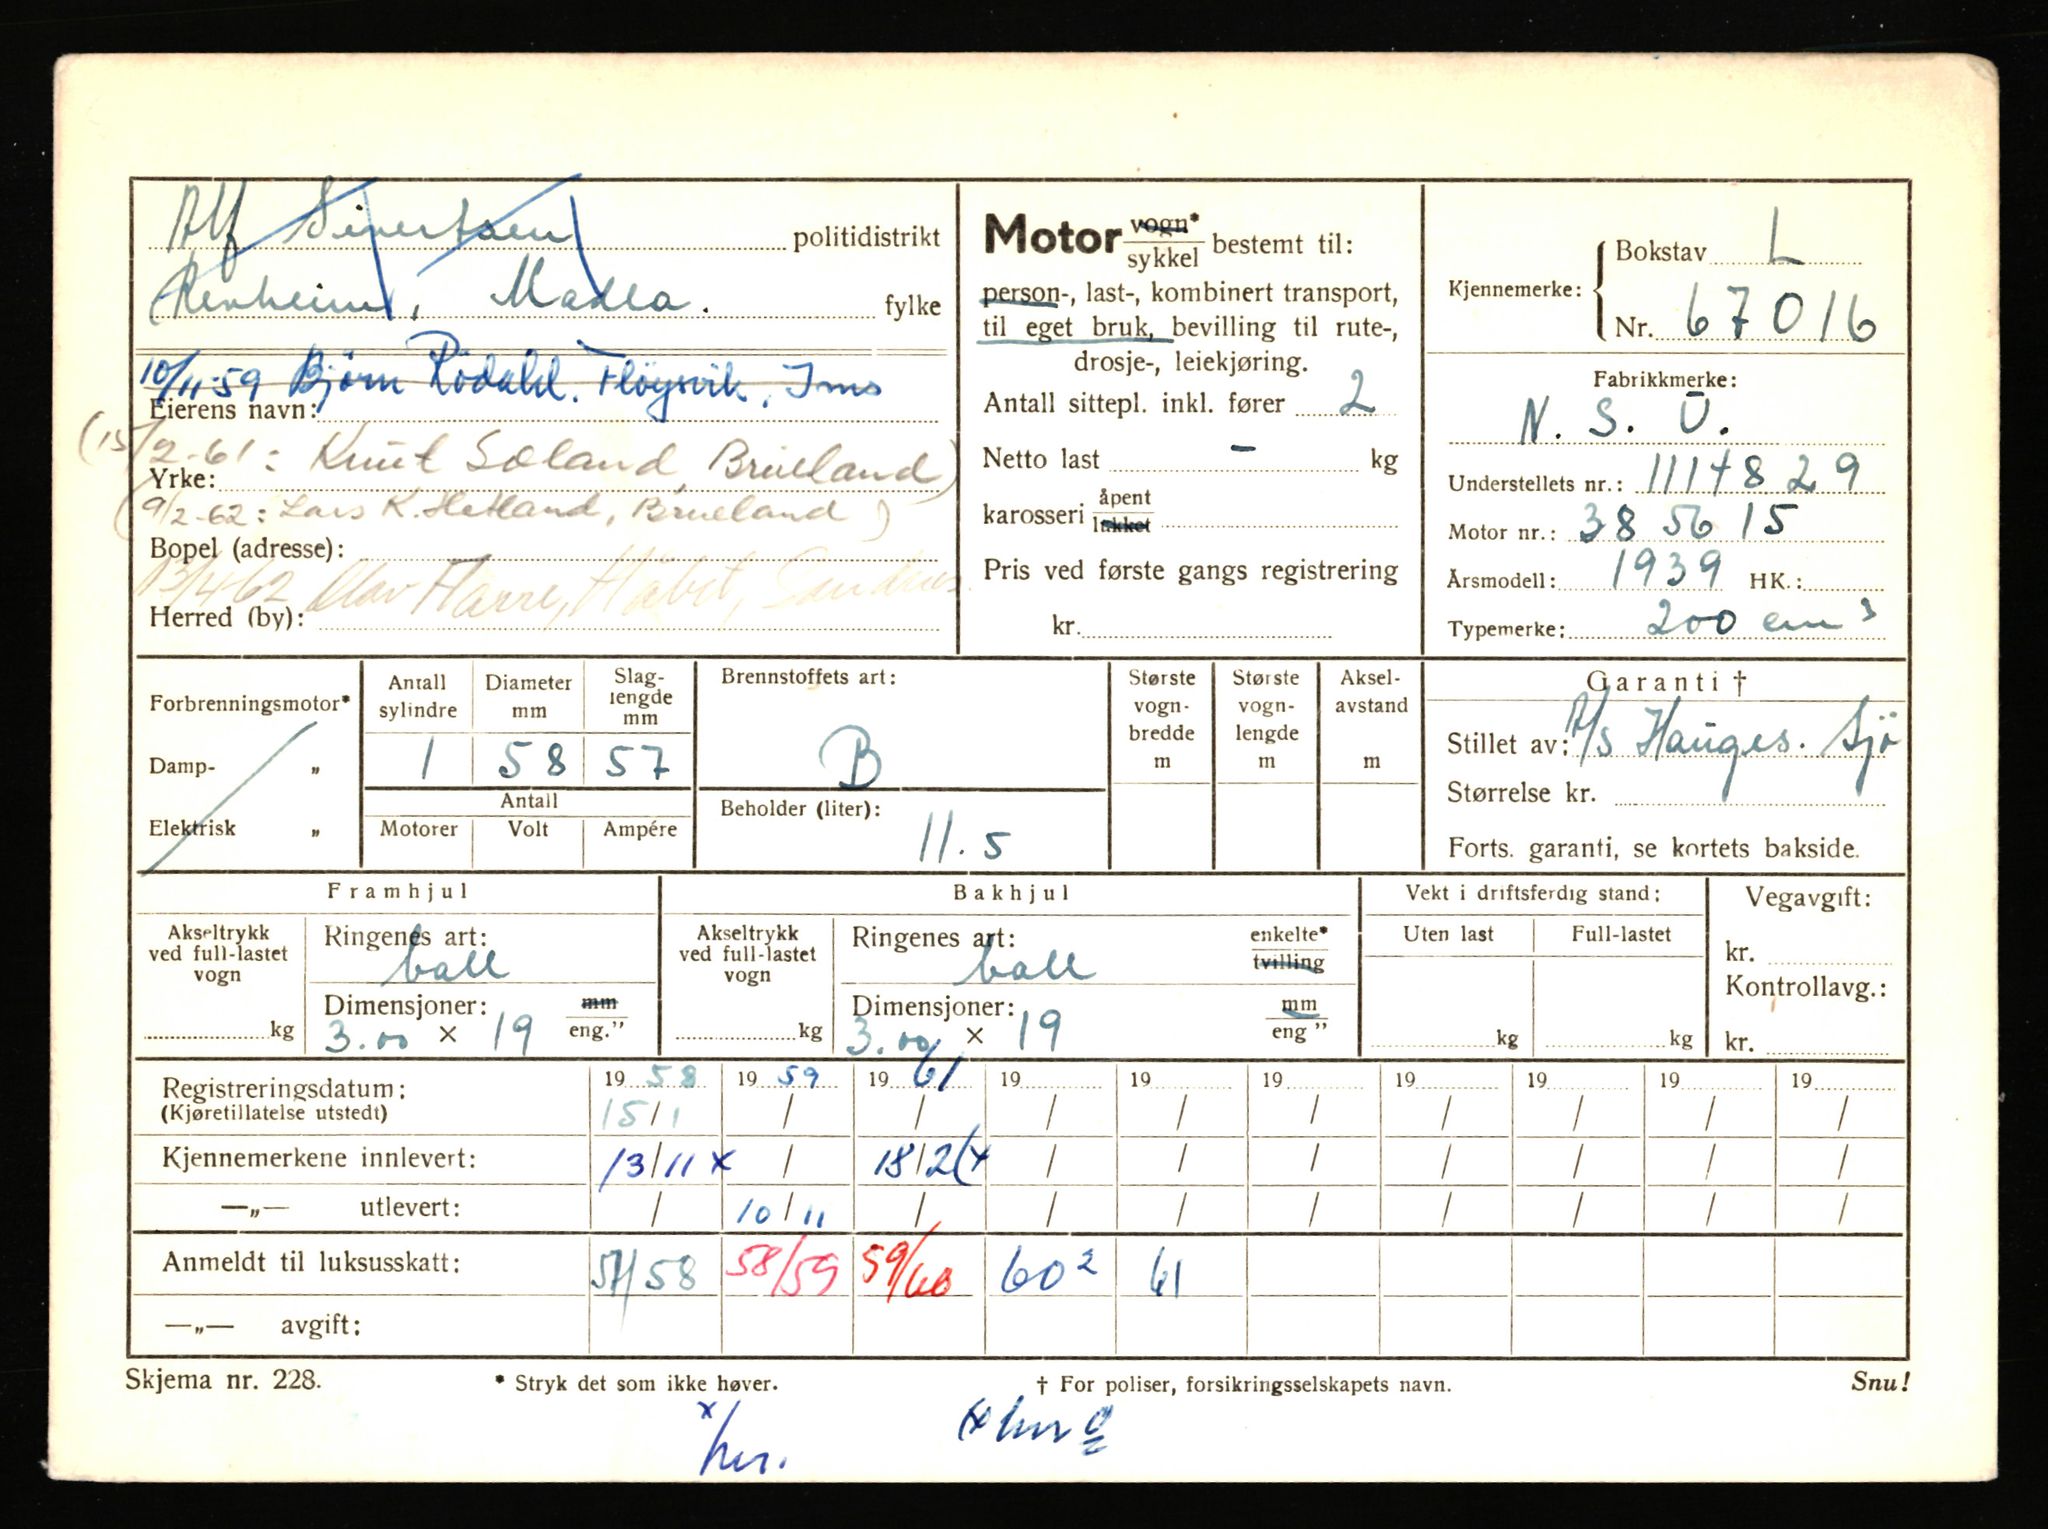 Alf Sivertsen politidistrikt
Revheim, Madla. fylke
10/11-59 Bjørn Rödahl. Fløysvik, Ims
Eierens navn:
(15/2-61: Knut Sæland, Brueland)
Yrke:
(9/2-62: Lars K. Hetland, Brueland)
Bopel (adresse):
13/4-62 Olav Harre, Håbet, Sandnes
Herred (by):
Motor vogn*
sykkel bestemt til:
person-, last-, kombinert transport,
til eget bruk, bevilling til rute-,
drosje-, leiekjøring.
Antall sittepl. inkl. fører 2
Netto last - kg
karosseri åpent
lukket
Pris ved første gangs registrering
kr.
Kjennemerke: Bokstav L
Nr. 67016
Fabrikkmerke:
N. S. U.
Understellets nr.: 1114829
Motor nr.: 385615
Årsmodell: 1939 HK.:
Typemerke: 200 cm³
Forbrenningsmotor*
Damp- „
Elektrisk „
Antall sylindre Diameter mm Slaglengde mm
1 58 57
Antall
Motorer Volt Ampére
Brennstoffets art:
B
Beholder (liter):
11.5
Største vogn-bredde m
Største vogn-lengde m
Aksel-avstand m
Garanti †
Stillet av: A/S Hauges. Sjö
Størrelse kr.
Forts. garanti, se kortets bakside.
Framhjul
Akseltrykk ved full-lastet vogn
kg
Ringenes art:
ball
Dimensjoner: mm
3.00 × 19 eng."
Bakhjul
Akseltrykk ved full-lastet vogn
kg
Ringenes art: enkelte*
ball tvilling
Dimensjoner: mm
3.00 × 19 eng"
Vekt i driftsferdig stand:
Uten last Full-lastet
kg kg
Vegavgift:
kr.
Kontrollavg.:
kr.
Registreringsdatum: 19 58 19 59 19 61 19 19 19 19 19 19 19
(Kjøretillatelse utstedt) 15/1 / / / / / / / / /
Kjennemerkene innlevert: 13/11 x / 18/2 (x / / / / / / /
—„— utlevert: / 10/11 / / / / / / / /
Anmeldt til luksusskatt: 57/58 58/59 59/60 60² 61
—„— avgift:
Skjema nr. 228. * Stryk det som ikke høver. † For poliser, forsikringsselskapets navn. Snu!
x/her.
(x her